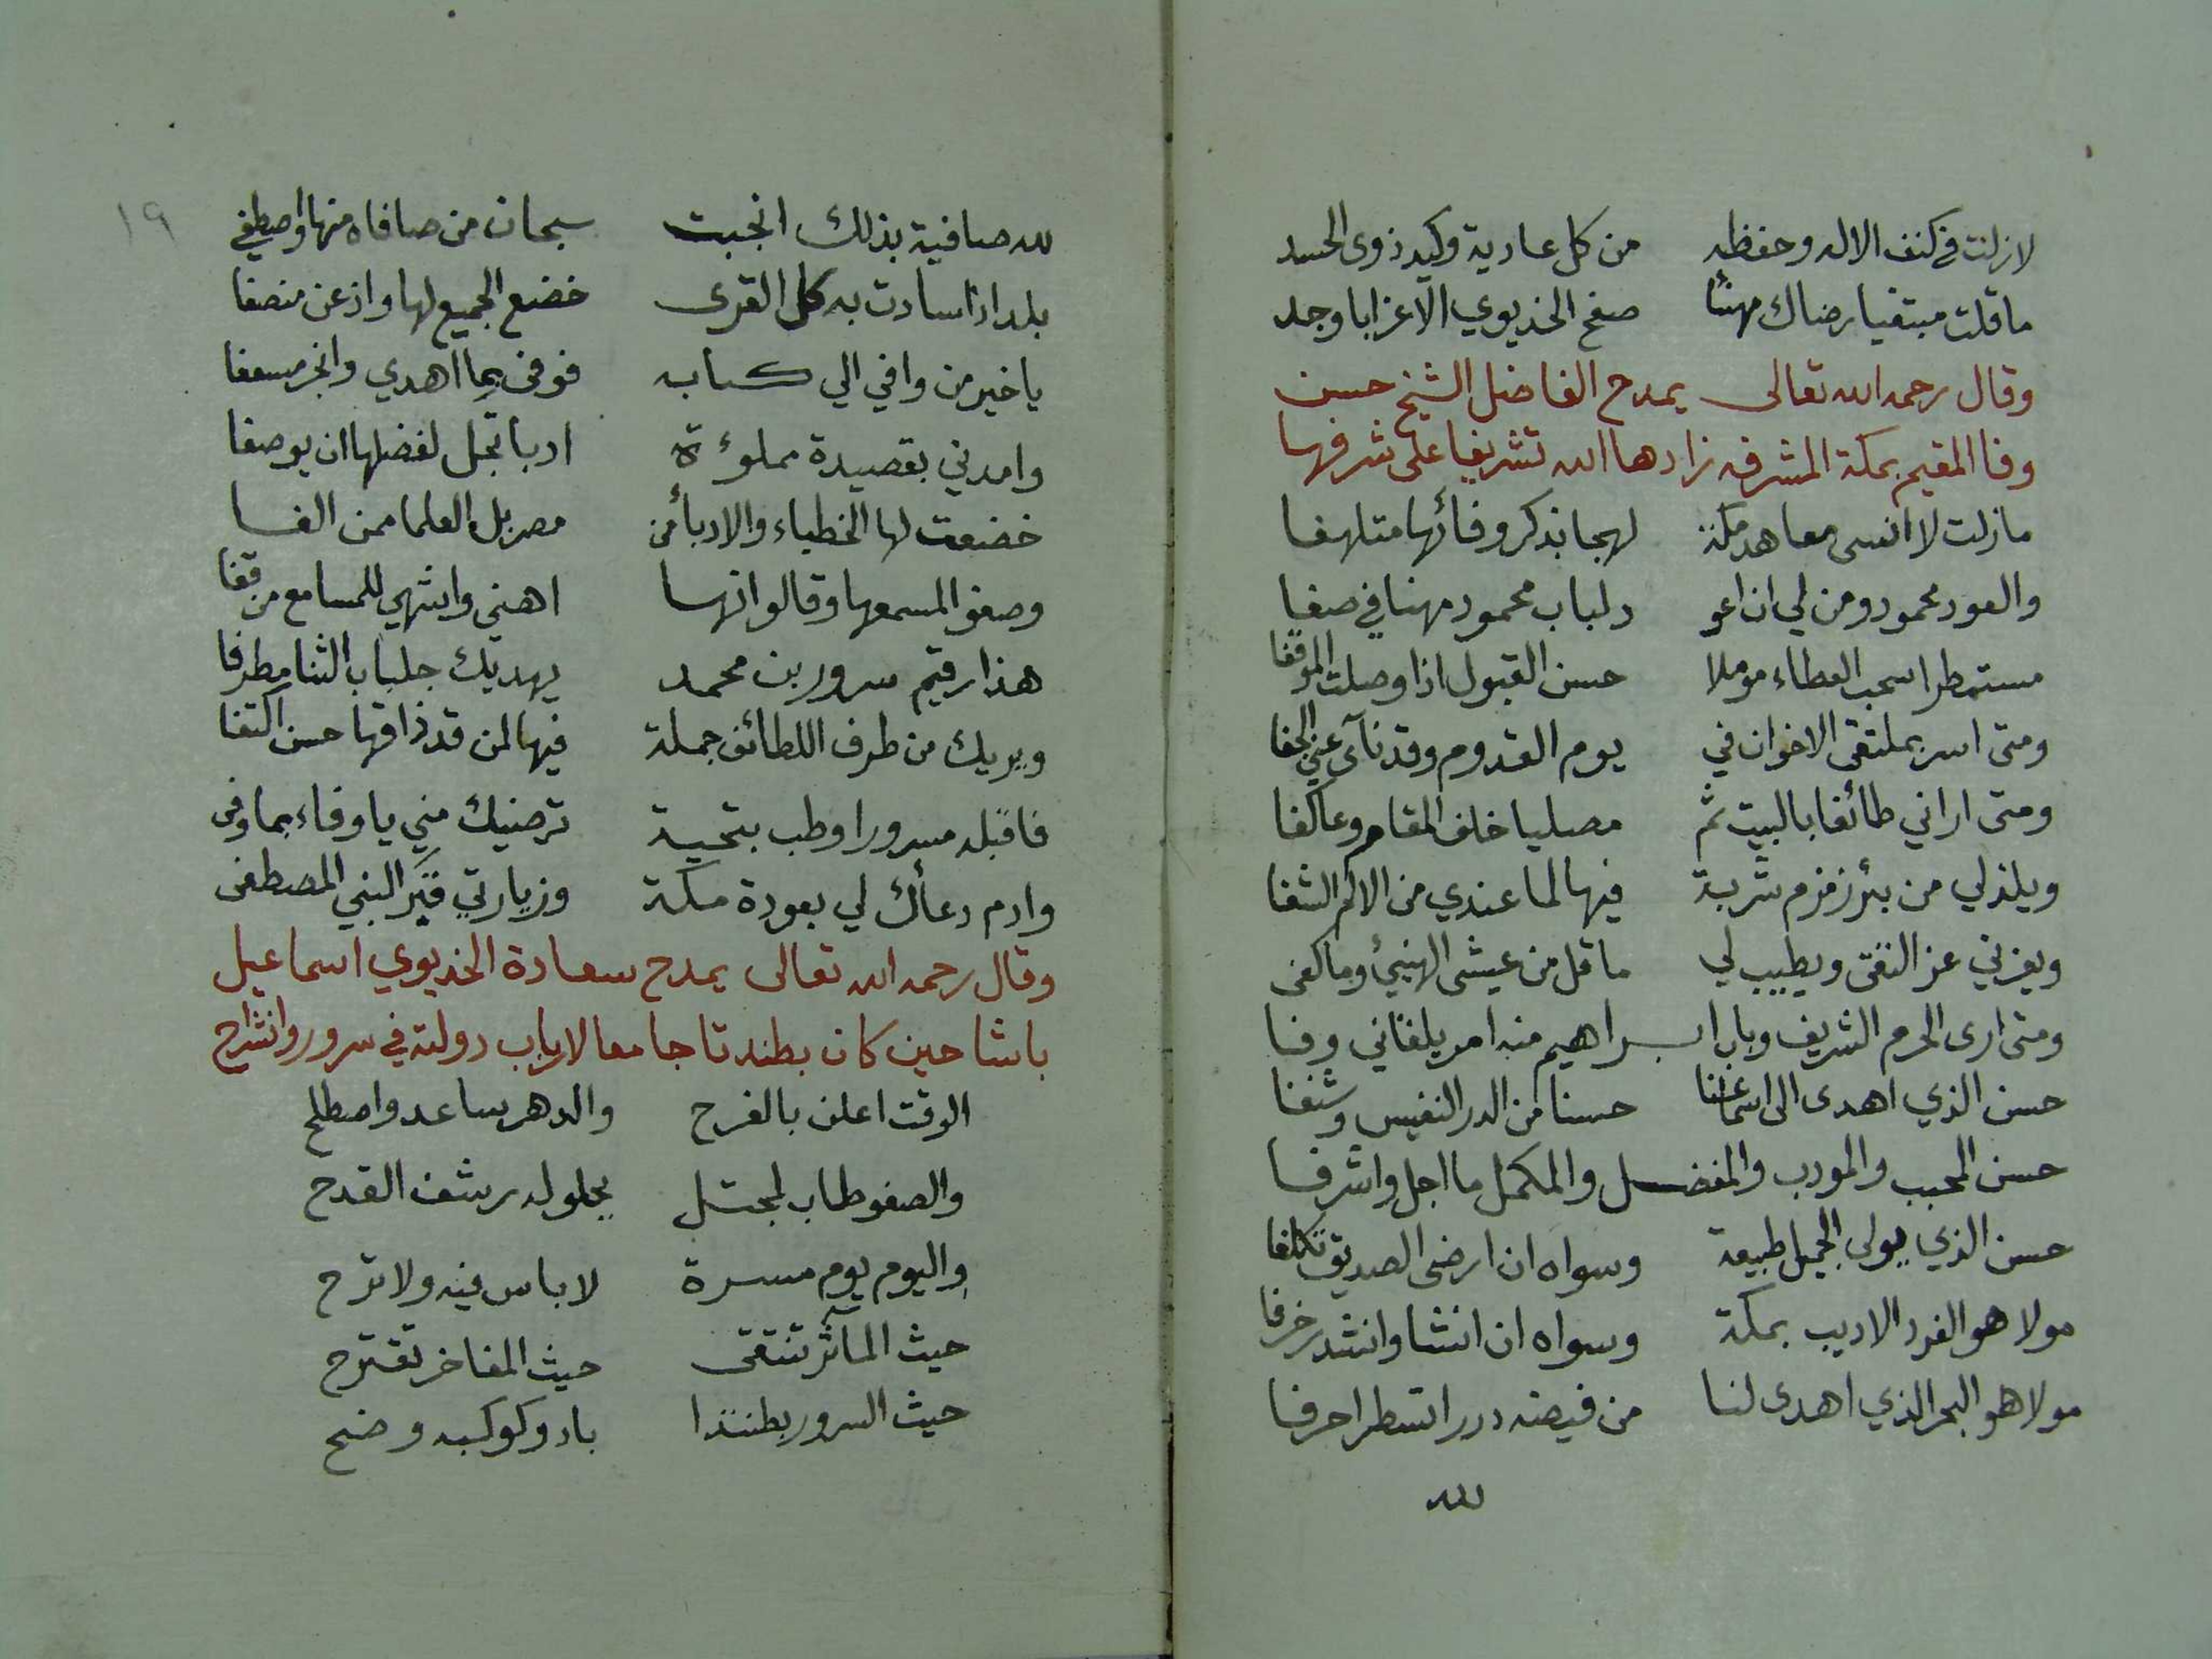 لازلت في كنف الاله وحفظه من كل عادية وكيد ذوى الحسد
ما قلت مبتغيا رضاك مهنئا صفح الخديوي الاعز اباوجد
وقال رحمه الله تعالى يمدح الفاضل الشيخ حسن
وفا المقيم بمكة المشرفه زادها الله تشريفا على شرفها
مازلت لا انسى معاهد مكة لهجا بذكر وفائها متلهفا
والعود محمود ومن لي ان اعو دلباب محمود مهنا في صفا
مستمطرا سحب العطاء موملا حسن القبول اذا وصلت الموقفا
ومتى اسر بملتقى الاخوان في يوم القدوم وقد نآى عني الجفا
ومتى اراني طائفا بالبيت ثم مصليا خلف المقام وعاكفا
ويلذلي من بئر زمزم شربة فيها لما عندي من الالم الشفا
ويعزني عز التقى ويطيب لي ما قل من عيشى الهنيئ وما كفى
ومتى ارى الحرم الشريف وباب ابراهيم منه امر يلقاني وفا
حسن الذي اهدى الى اسماعنا حسنا من الدر النفيس وشنفا
حسن المحبب والمودب والمفضل والمكمل ما اجل واشرفا
حسن الذي يولى الجميل طبيعة وسواه ان ارضى الصديق تكلفا
مولا هو الفرد الاديب بمكة وسواه ان انشا وانشد زخرفا
مولا هو البحر الذي اهدى لنا من فيضه دررا تسطر احرفا
لله
١٩
لله صافية بذلك انجبت سبحان من صافاه منها واصطفي
بلد اذا سادت به كل القرى خضع الجميع لها واذعن منصفا
يا خير من وافي الي كتابه فوفى بما اهدي وانجز مسعفا
وامدني بقصيدة مملؤة ادبا تجل لفضلها ان يوصفا
خضعت لها الخطباء والادبأ من مصر بل العلما ممن الفا
وصغو المسمعها وقالو انها اهني واشهي للمسامع من قفا
هذا رقيم سرور بن محمد يهديك جلباب الثنا مطرفا
ويريك من طرف اللطائف جملة فيها لمن قد ذاقها حسن اكتفا
فاقبله مسرورا وطب بتحية ترضيك مني يا وفاء بما وفى
وادم دعأك لي بعودة مكة وزيارتي قبر النبي المصطفى
وقال رحمه الله تعالى يمدح سعادة الخديوي اسماعيل
باشا حين كان بطندتا جامعا لارباب دولته في سرور وانشراح
الوقت اعلن بالفرح والدهر ساعد واصطلح
والصفو طاب لمجتل يحلو له رشف القدح
واليوم يوم مسرة لا باس فيه ولا ترح
حيث المآثر تنتقى حيث المفاخر تقترح
حيث السرور بطنتدا باد وكوكبه وضح